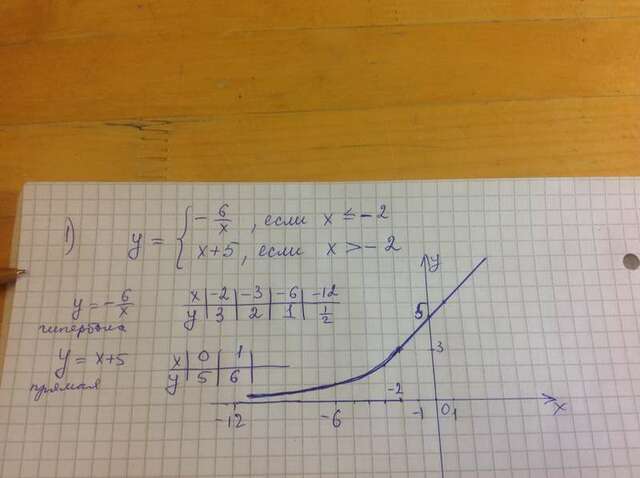 1) y = { -6/x , если x ≤ -2
x+5, если x > -2
y = -6/x
гипербола
x | -2 | -3 | -6 | -12
y | 3 | 2 | 1 | 1/2
y = x+5
прямая
x | 0 | 1
y | 5 | 6
y
5
3
-12 -6 -2 -1 0 1 x